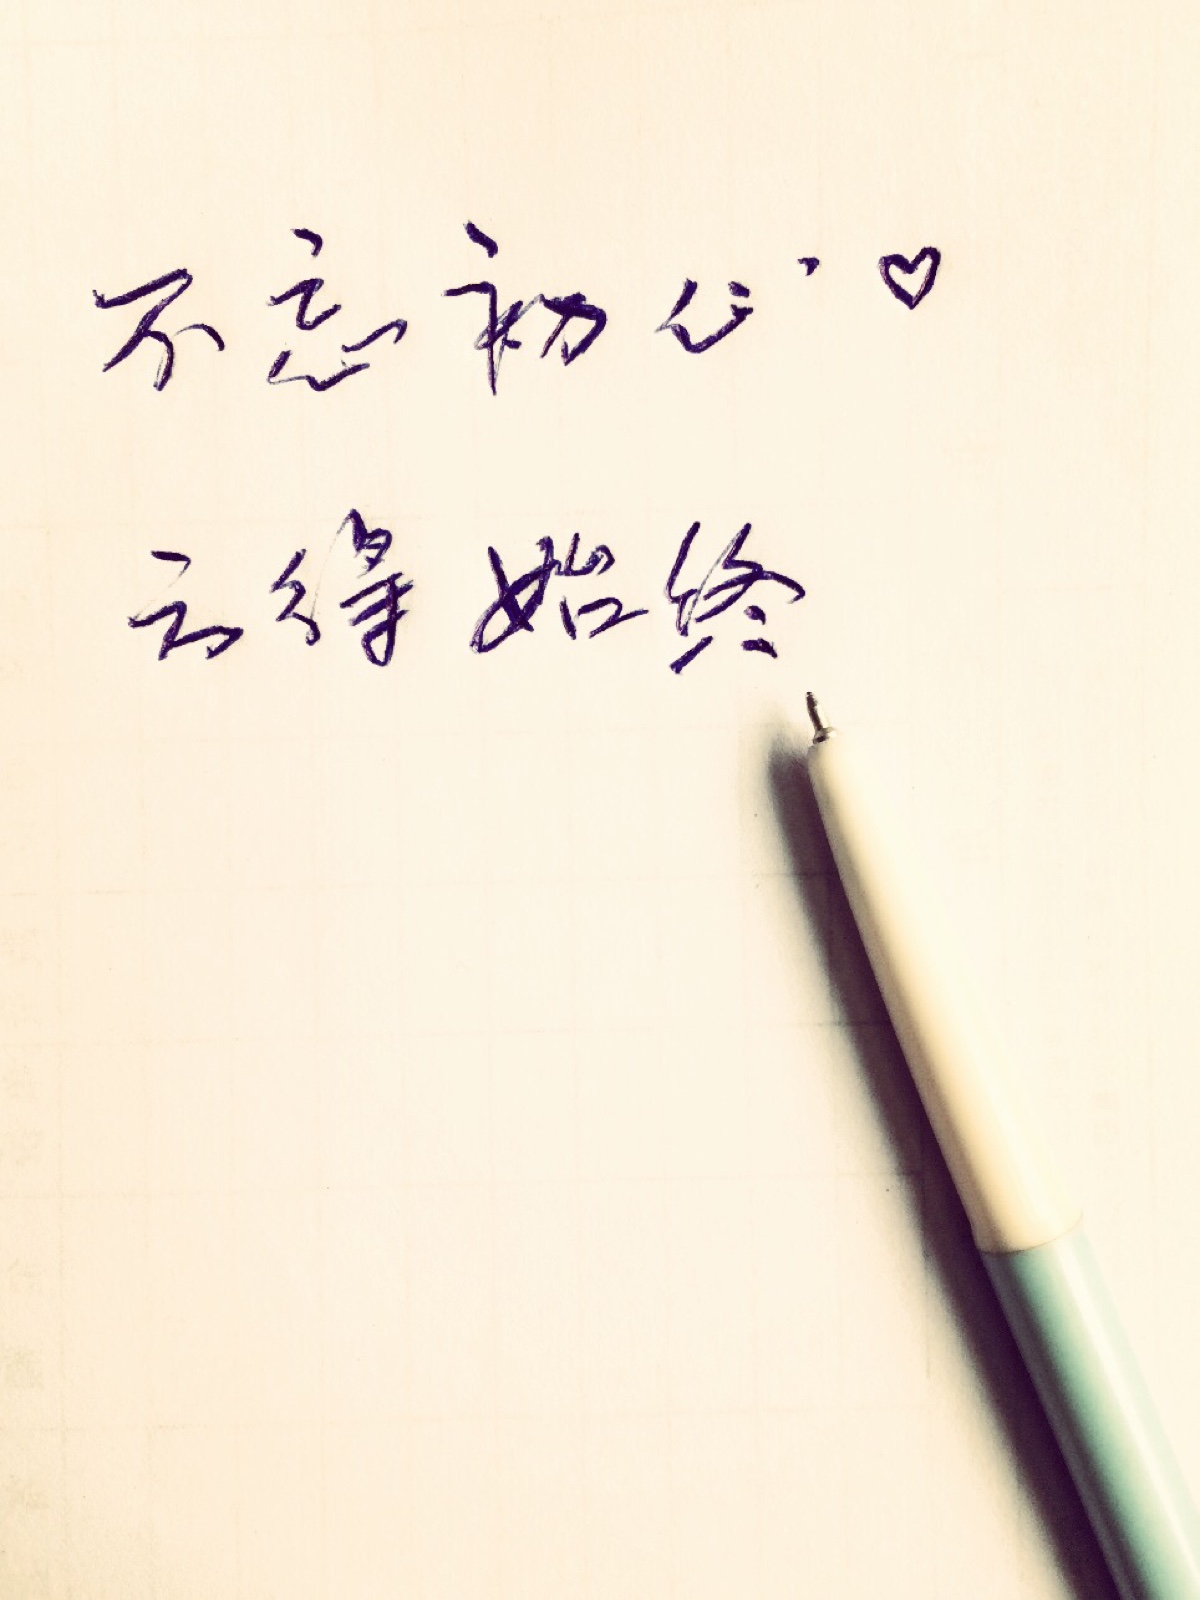 不忘初心♡
云得始终